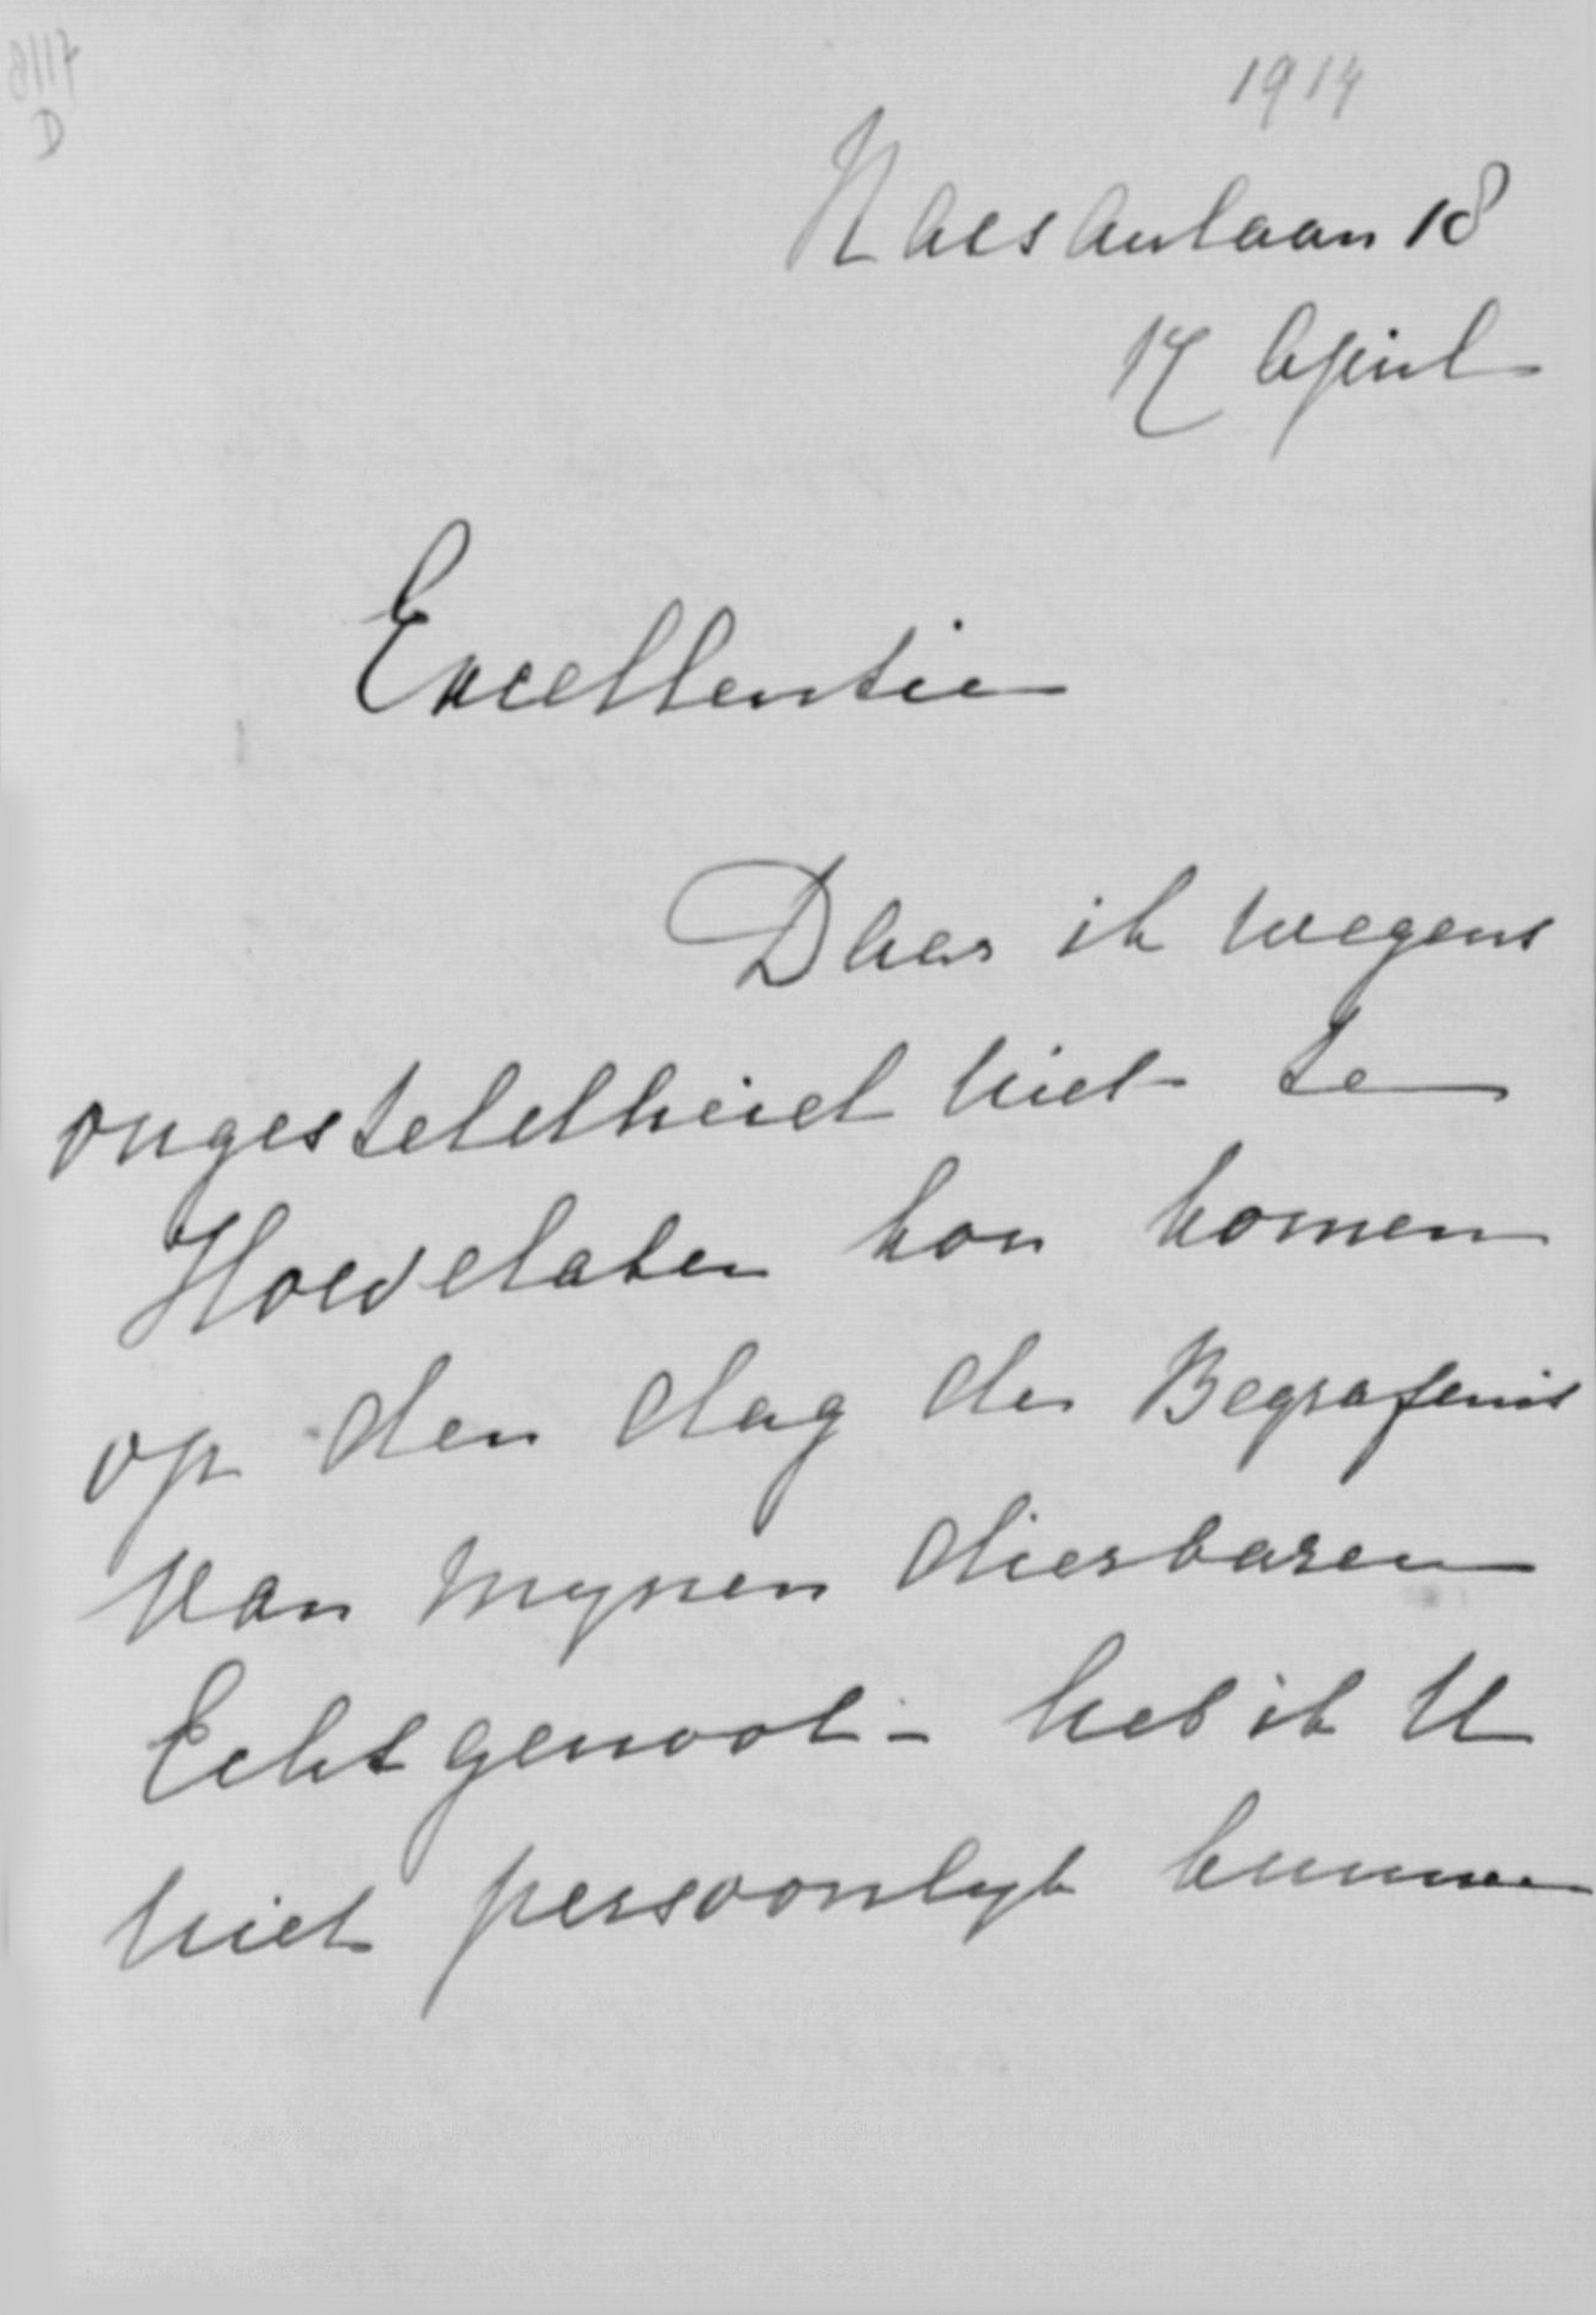 8117
D
1914
Nassaulaan 18
17 April
Excellentie
Daar ik wegens
ongesteldheid niet te
Hoevelaken kon komen
op den dag der Begrafenis
van mynen dierbaren
Echtgenoot - heb ik U
niet persoonlyk kunnen